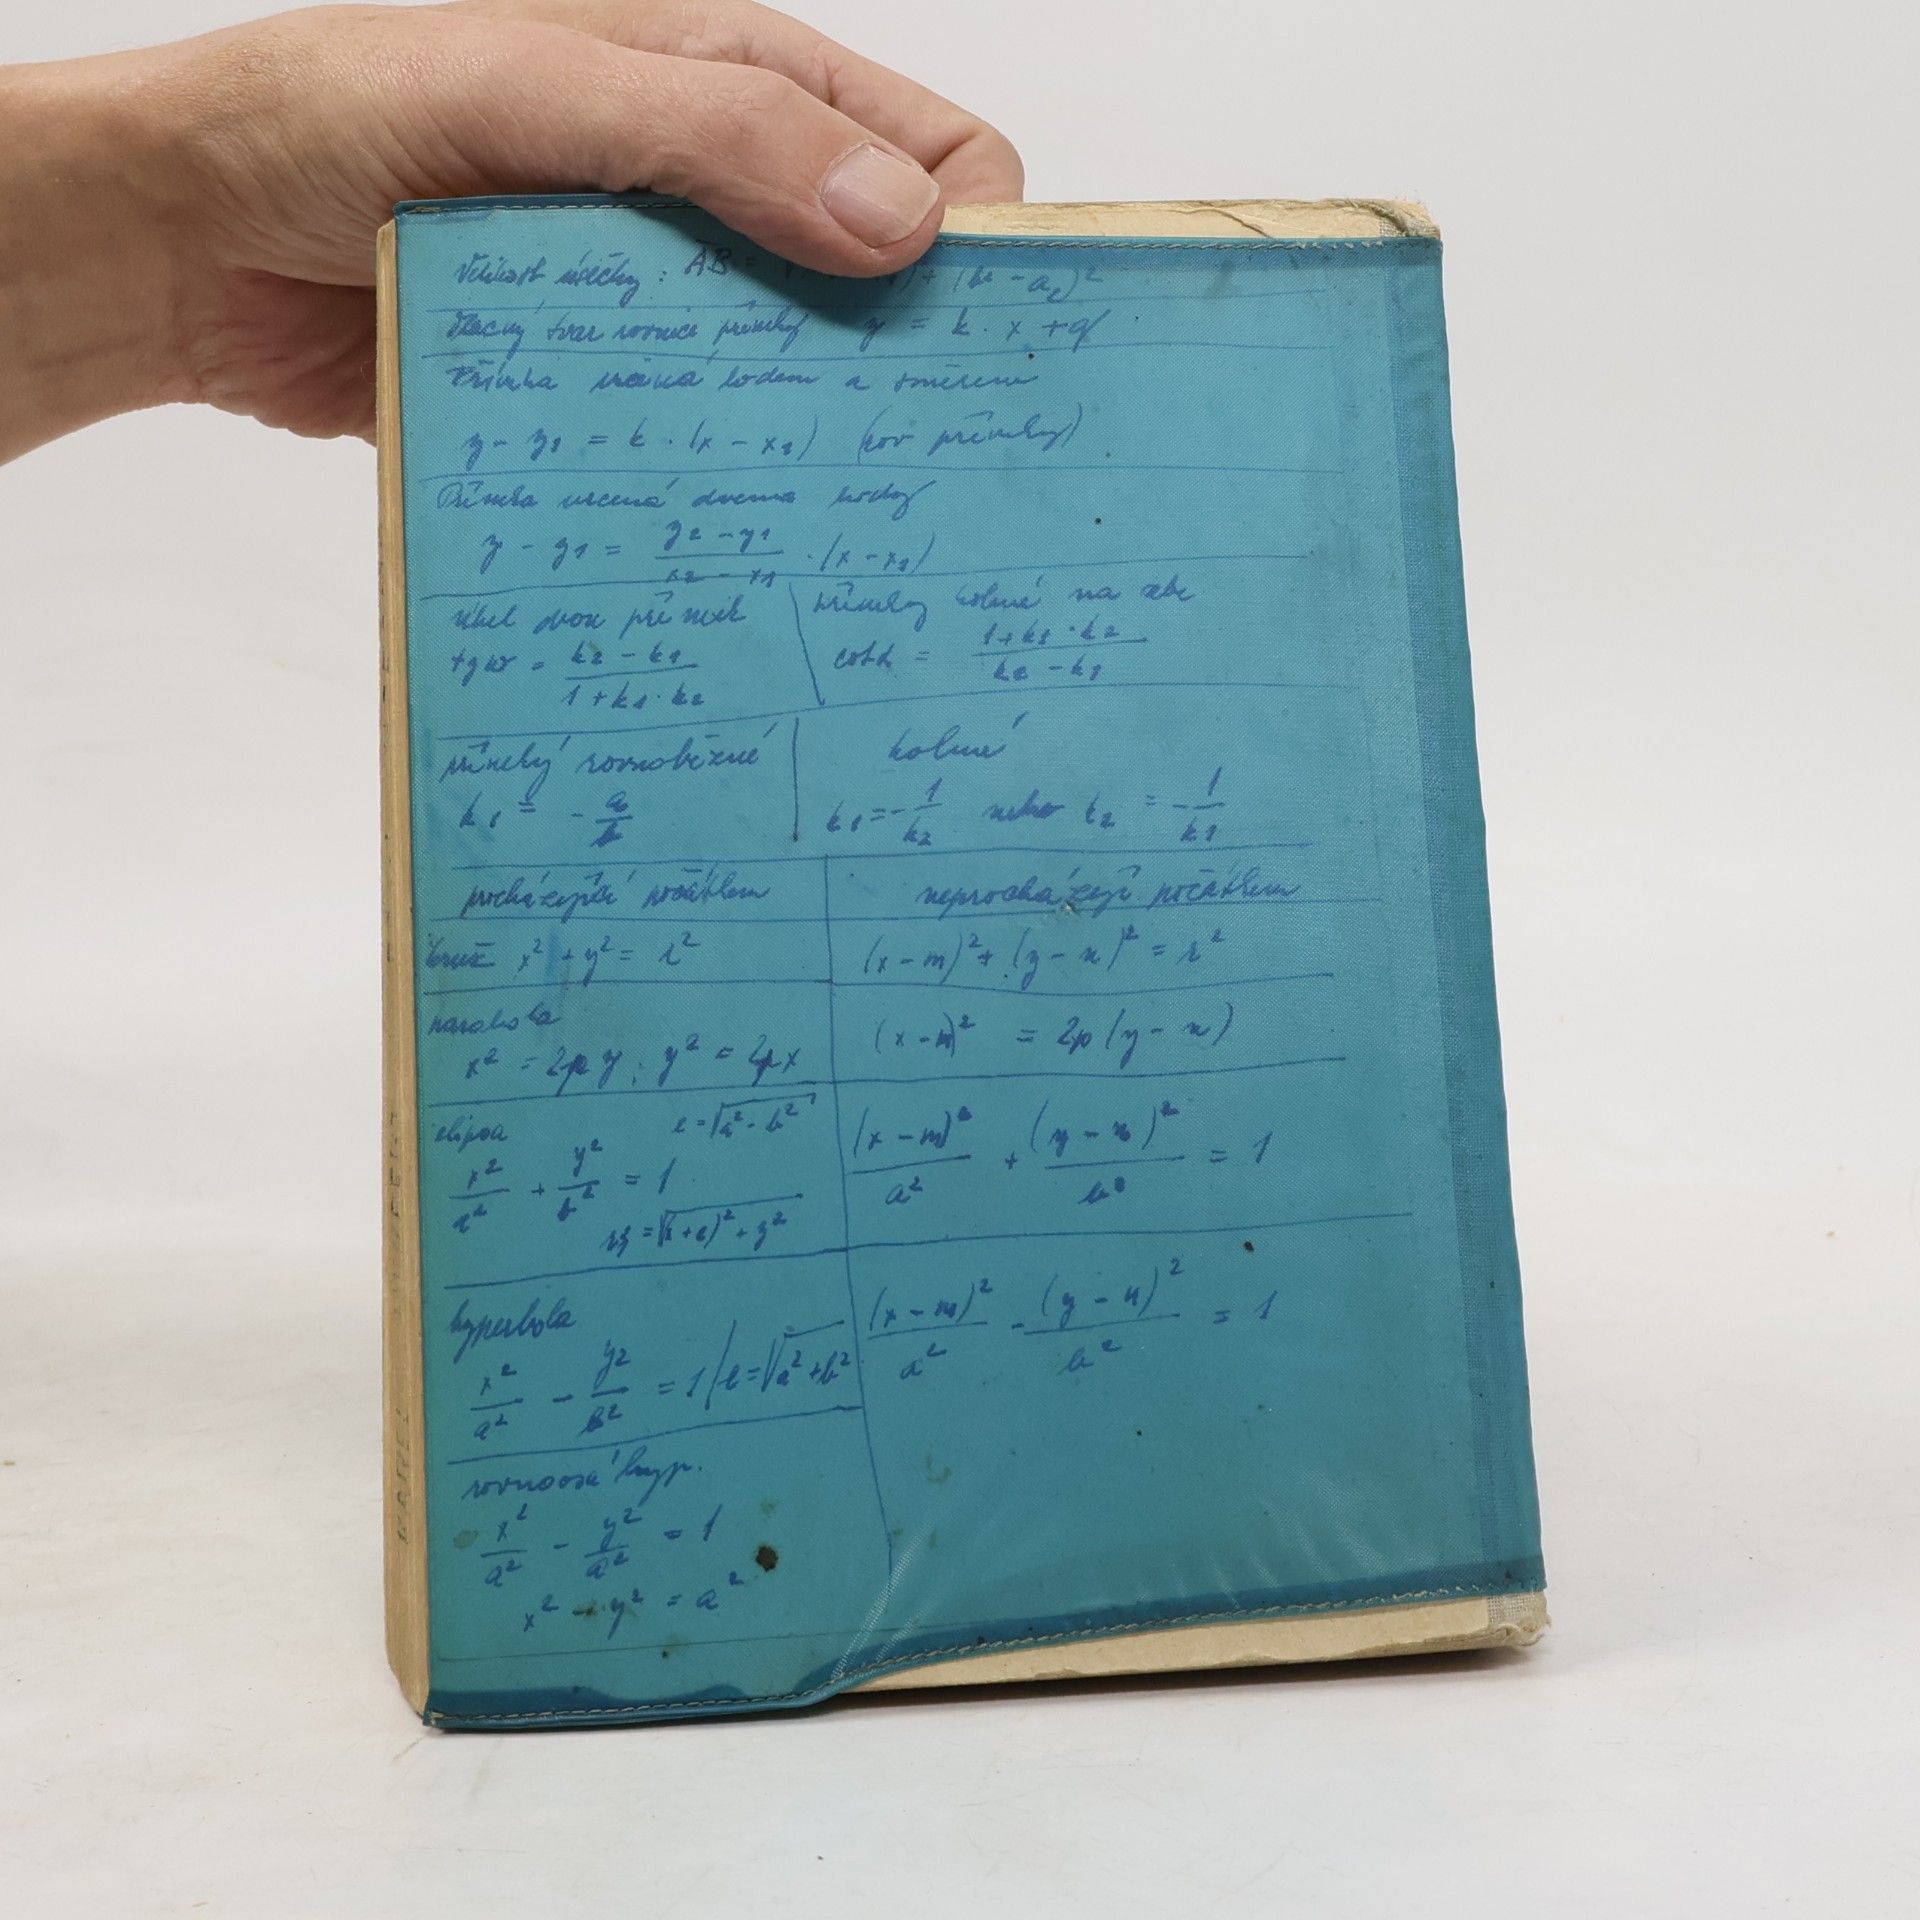 Velikost úsečky: AB = + (b₂ - a₂)²
tvar rovnice přímky y = k · x + q
Přímka určená bodem a směrem
y - y₁ = k · (x - x₁) (rov přímky)
Přímka určená dvema body
y - y₁ = (y₂ - y₁)/(x₂ - x₁) · (x - x₁)
úhel dvou přímek
tg w = (k₂ - k₁)/(1 + k₁ · k₂)
přímky kolmé na sebe
cotα = (1 + k₁ · k₂)/(k₂ - k₁)
přímky rovnoběžné
k₁ = - a/b
kolmé
k₁ = - 1/k₂ nebo k₂ = - 1/k₁
procházející počátkem neprocházejí počátkem
kruž x² + y² = r² (x - m)² + (y - n)² = r²
parabola
x² = 2py ; y² = 2px (x - m)² = 2p(y - n)
elipsa e = √(a² - b²)
x²/a² + y²/b² = 1 (x - m)²/a² + (y - n)²/b² = 1
= √((x + e)² + y²)
hyperbola
x²/a² - y²/b² = 1 / e = √(a² + b²) (x - m)²/a² - (y - n)²/b² = 1
rovnoosá hyp.
x²/a² - y²/a² = 1
x² - y² = a²